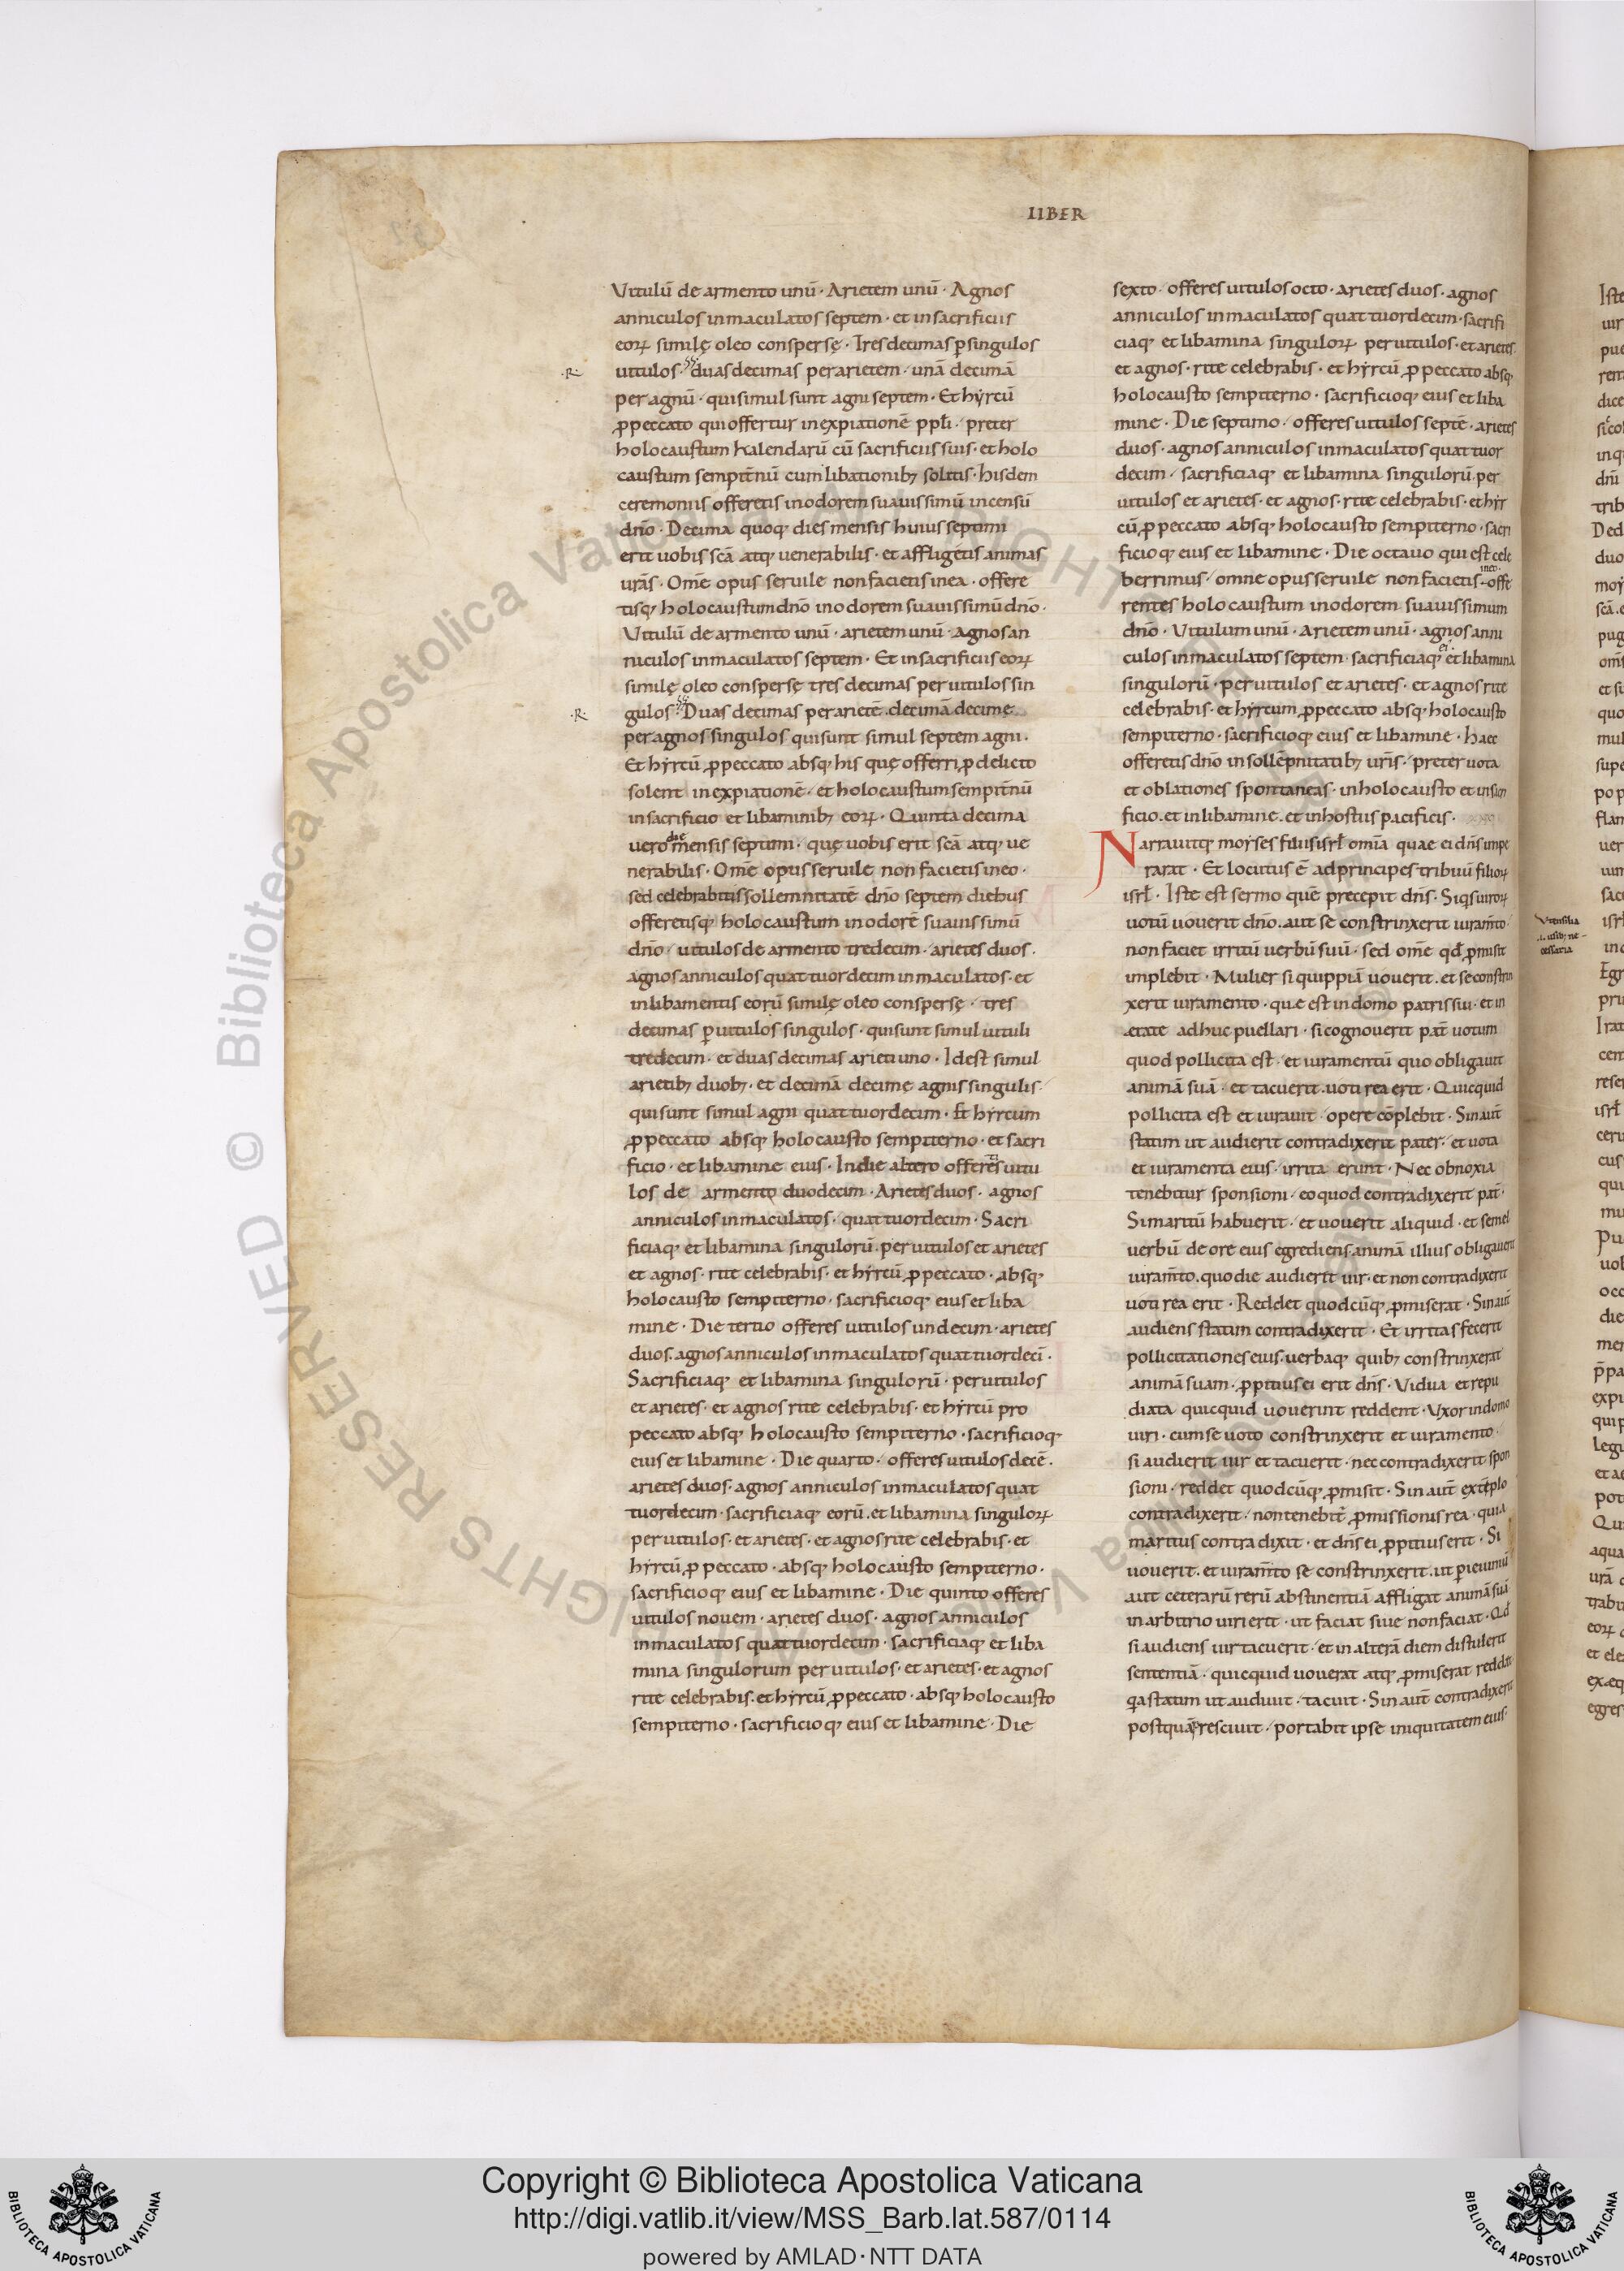 LIBER
Vitulū de armento unū · Arietem unū · Agnos
anniculos inmaculatos septem · et in sacrificiis
eoꝝ similę oleo conspersę · Tres decimas ꝑ singulos
uitulos · duas decimas per arietem · unā decimā
per agnū · qui simul sunt agni septem · Et hẏrcū
ꝓ peccato qui offertur in expiationē ppłi · preter
holocaustum kalendarū cū sacrificiis suis · et holo
caustum sempit̄nū cum libationibꝫ solitis · hisdem
ceremoniis offeretis in odorem suauissimū incensū
dn̄o · Decima quoqꝫ dies mensis huius septimi
erit uobis sc̄a atqꝫ uenerabilis · et affligetis animas
ur̄as · Om̄e opus seruile non facietis in ea · offere
tisqꝫ holocaustum dn̄o in odorem suauissimū dn̄o ·
Vitulū de armento unū · arietem unū · Agnos an
niculos inmaculatos septem · Et in sacrificiis eoꝝ
similę oleo conspersę tres decimas per uitulos sin
gulos · Duas decimas per arietē · decimā decimę
per agnos singulos qui sunt simul septem agni ·
Et hẏrcū ꝓ peccato absqꝫ his quę offerri ꝓ delicto
solent in expiationē · et holocaustum sempit̄nū
in sacrificio et libaminibꝫ eoꝝ · Quinta decima
die
uero mensis septimi · quę uobis erit sc̄a atqꝫ ue
nerabilis · Om̄e opus seruile non facietis in eo ·
sed celebrabitis sollemnitatē dn̄o septem diebus
offeretisqꝫ holocaustum in odorē suauissimū
dn̄o · uitulos de armento tredecim · arietes duos ·
agnos anniculos quattuordecim inmaculatos · et
in libamentis eorū similę oleo conspersę · tres
decimas ꝑ uitulos singulos · qui sunt simul uituli
tredecim · et duas decimas arieti uno · Idest simul
arietibꝫ duobꝫ · et decimā decimę agnis singulis ·
qui sunt simul agni quattuordecim · Et hẏrcum
ꝓ peccato absqꝫ holocausto sempiterno · et sacri
ficio · et libamine eius · In die altero offeres uitu
los de armento duodecim · Arietes duos · agnos
anniculos inmaculatos · quattuordecim · Sacri
ficiaqꝫ et libamina singulorū · per uitulos et arietes
et agnos · rite celebrabis · et hẏrcū ꝓ peccato · absqꝫ
holocausto sempiterno · sacrificioqꝫ eius et liba
mine · Die tertio offeres uitulos undecim · arietes
duos · agnos anniculos inmaculatos quattuordecī ·
Sacrificiaqꝫ et libamina singulorū · per uitulos
et arietes · et agnos rite celebrabis · et hẏrcū pro
peccato absqꝫ holocausto sempiterno · sacrificioqꝫ
eius et libamine · Die quarto · offeres uitulos decē ·
arietes duos · agnos anniculos inmaculatos quat
tuordecim · sacrificiaqꝫ eorū · et libamina singuloꝝ
per uitulos · et arietes · et agnos rite celebrabis · et
hẏrcū ꝓ peccato · absqꝫ holocausto sempiterno ·
sacrificioqꝫ eius et libamine · Die quinto offeres
uitulos nouem · arietes duos · agnos anniculos
inmaculatos quattuordecim · sacrificiaqꝫ et liba
mina singulorum per uitulos · et arietes · et agnos
rite celebrabis · et hẏrcū ꝓ peccato · absqꝫ holocausto
sempiterno · sacrificioqꝫ eius et libamine · Die
sexto · offeres uitulos octo · arietes duos · agnos
anniculos inmaculatos quattuordecim · sacrifi
ciaqꝫ et libamina singuloꝝ per uitulos · et arietes
et agnos · rite celebrabis · et hẏrcū ꝓ peccato absqꝫ
holocausto sempiterno · sacrificioqꝫ eius et liba
mine · Die septimo · offeres uitulos septē · arietes
duos · agnos anniculos inmaculatos quattuor
decim · sacrificiaqꝫ et libamina singulorū · per
uitulos et arietes · et agnos · rite celebrabis · et hẏr
cū ꝓ peccato absqꝫ holocausto sempiterno · sacri
ficioqꝫ eius et libamine · Die octauo qui est cele
in eo
berrimus · omne opus seruile non facietis · offe
rentes holocaustum in odorem suauissimum
dn̄o · Vitulum unū · Arietem unū · agnos anni
culos inmaculatos septem · sacrificiaqꝫ et libamina
singulorū · per uitulos et arietes · et agnos rite
celebrabis · et hẏrcum ꝓ peccato absqꝫ holocausto
sempiterno · sacrificioqꝫ eius et libamine · Haec
offeretis dn̄o in sollēpnitatibꝫ ur̄is · preter uota
et oblationes spontaneas · in holocausto et in sacri
ficio · et in libamine · et in hostiis pacificis ·
Narrauitqꝫ moẏses filiis isrł omīa quae ei dn̄s impe
rarat · Et locutus ē ad principes tribuū filioꝝ
isrł · Iste est sermo quē precepit dn̄s · Siqs uiroꝝ
uotū uouerit dn̄o · aut se constrinxerit iuram̄to
non faciet irritū uerbū suū · sed om̄e qđ ꝓmisit
implebit · Mulier si quippiā uouerit · et se constrin
xerit iuramento · quę est in domo patris sui · et in
ętate adhuc puellari · si cognouerit pat̄ uotum
quod pollicita est · et iuramentū quo obligauit
animā suā · et tacuerit · uoti rea erit · Quicquid
pollicita est et iurauit · opere cōplebit · Sin aut̄
statim ut audierit contradixerit pater · et uota
et iuramenta eius · irrita erunt · Nec obnoxia
tenebitur sponsioni · eo quod contradixerit pat̄ ·
Si maritū habuerit · et uouerit aliquid · et semel
uerbū de ore eius egrediens animā illius obligauerit
iuram̄to · quo die audierit uir · et non contradixerit
uoti rea erit · Reddet quodcūqꝫ ꝓmiserat · Sin aut̄
audiens statim contradixerit · Et irritas fecerit
pollicitationes eius · uerbaqꝫ quibꝫ constrinxerat
animā suam · ꝓpitius ei erit dn̄s · Vidua et repu
diata quicquid uouerint reddent · Vxor in domo
uiri · cum se uoto constrinxerit et iuramento ·
si audierit uir et tacuerit · nec contradixerit spon
sioni · reddet quodcūqꝫ ꝓmisit · Sin aut̄ extēplo
contradixerit · non tenebit̄ ꝓmissionis rea · quia
maritus contradixit · et dn̄s ei ꝓpitius erit · Si
uouerit · et iuram̄to se constrinxerit · ut ꝑ ieiuniū
aut ceterarū rerū abstinentiā affligat animā suā
in arbitrio uiri erit · ut faciat siue non faciat · Qđ
si audiens uir tacuerit · et in alterā diem distulerit
sententiā · quicquid uouerat atqꝫ ꝓmiserat reddet
qa statim ut audiuit · tacuit · Sin aut̄ contradixerit
postquā resciuit · portabit ipse iniquitatem eius ·
Vtensilia
.i. usibꝫ ne-
cessaria
Copyright © Biblioteca Apostolica Vaticana
http://digi.vatlib.it/view/MSS_Barb.lat.587/0114
powered by AMLAD·NTT DATA
BIBLIOTECA APOSTOLICA VATICANA
BIBLIOTECA APOSTOLICA VATICANA